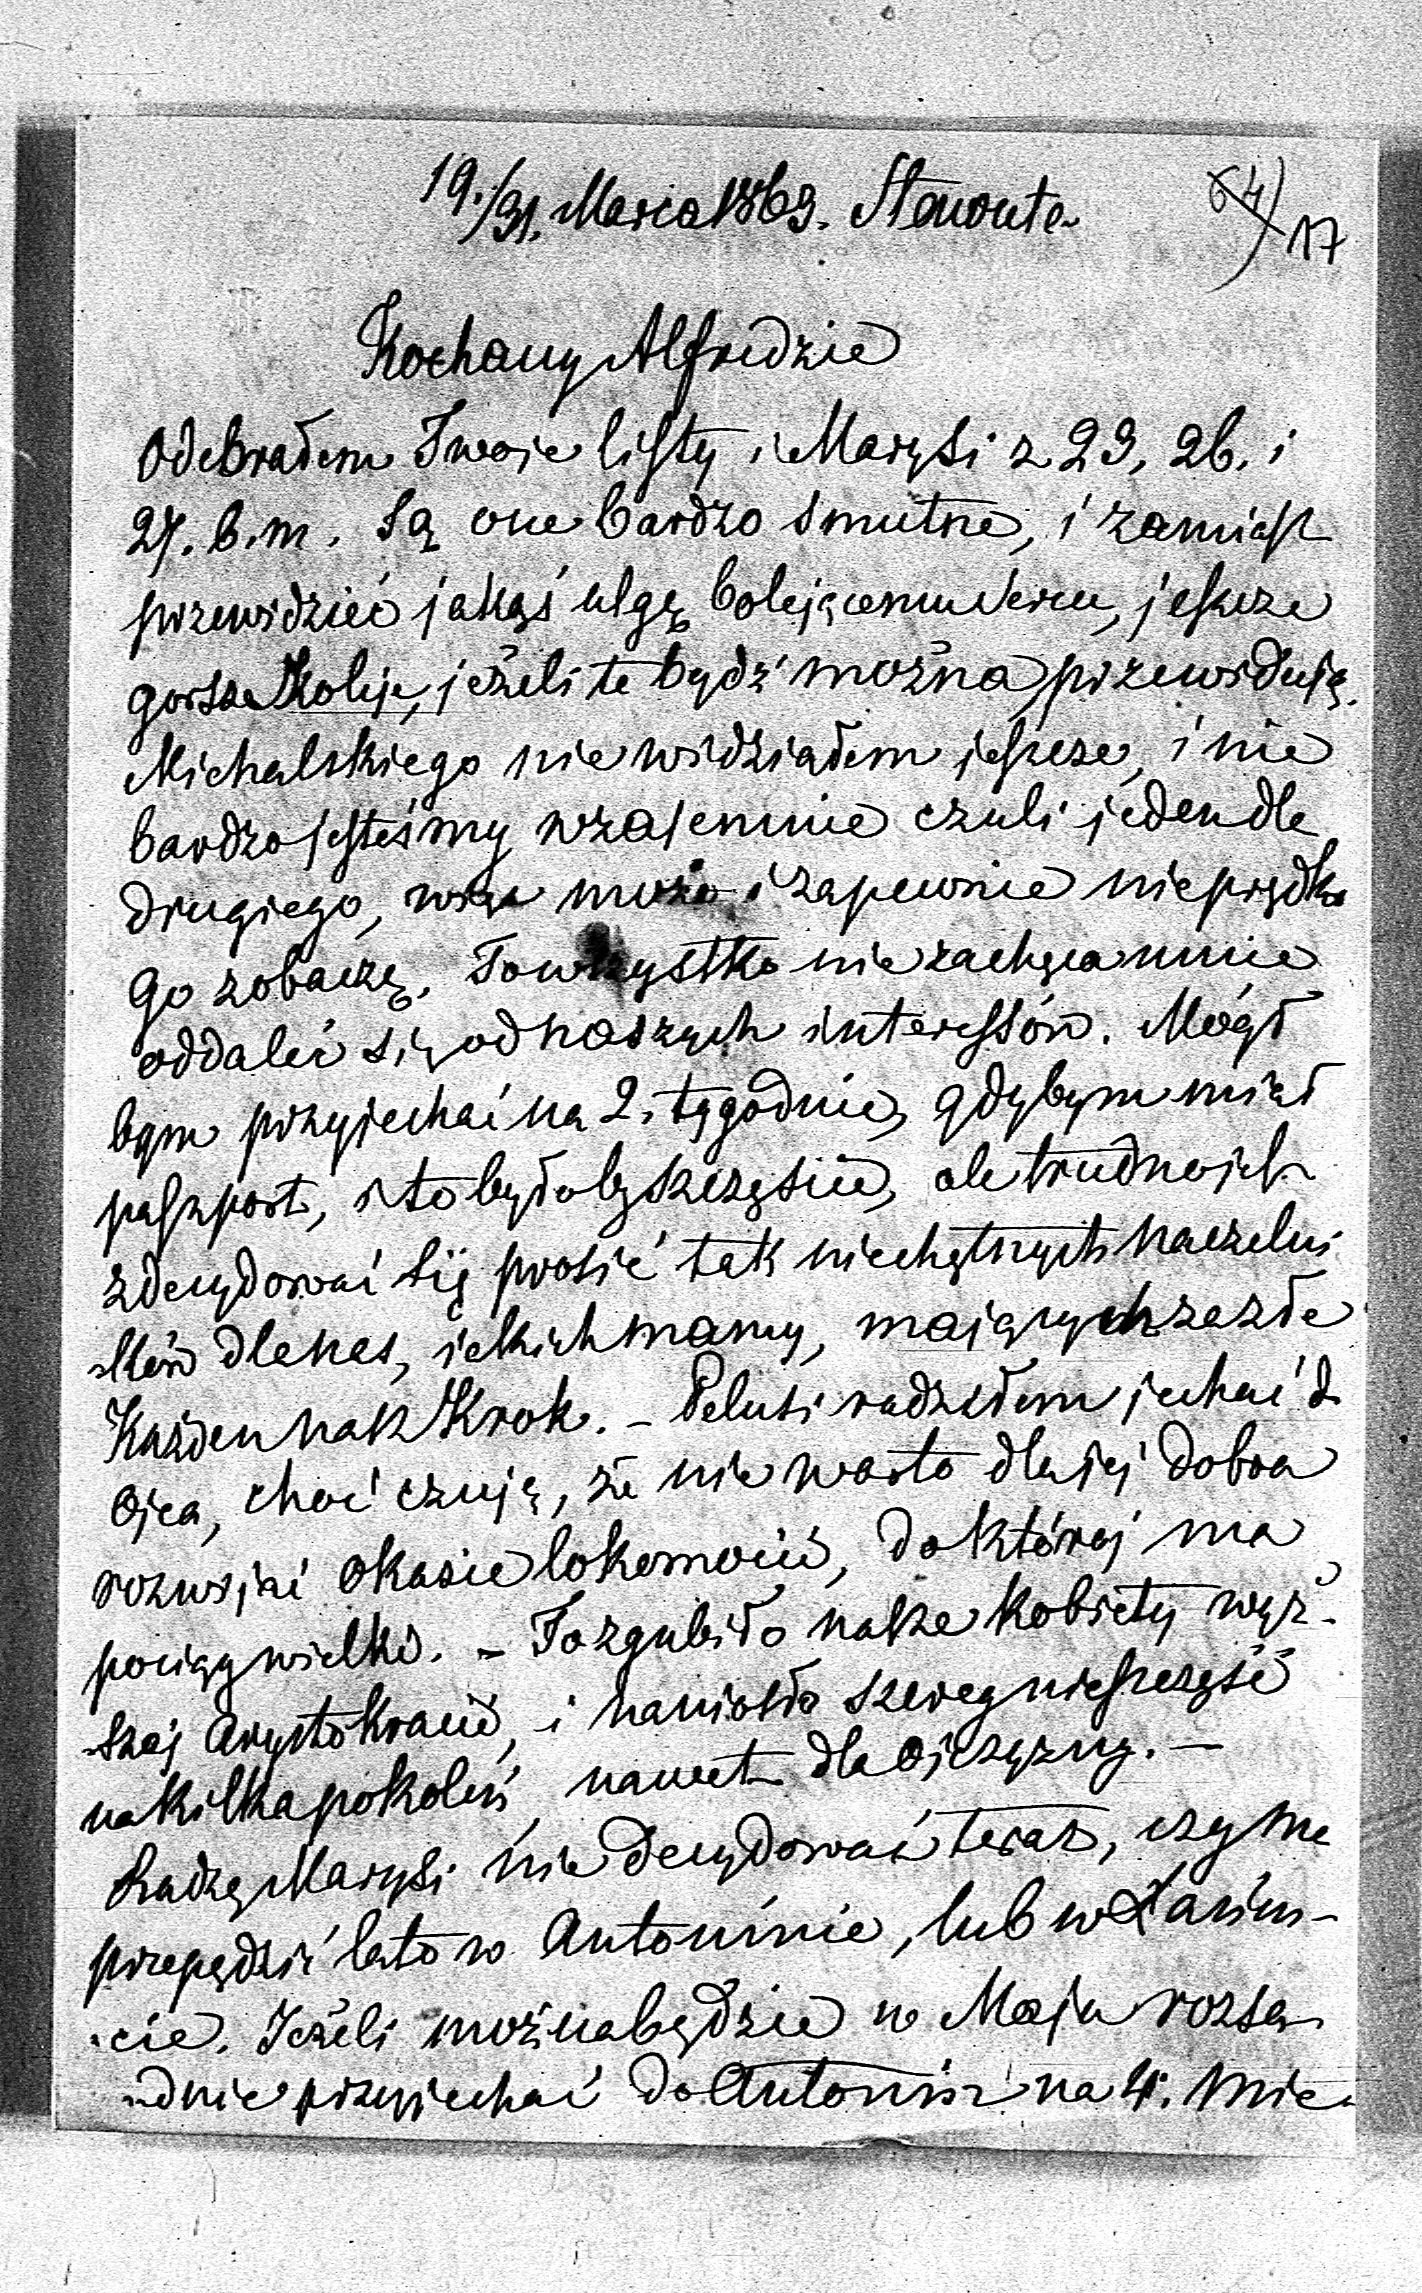 19./31. Marca 1863. Sławuta
64) 17
Kochany Alfredzie
Odebrałem Twoje listy i Marysi z 23, 26. i
27. b.m. Są one bardzo smutne, i zamiast
przewidzieć jakąś ulgę bolejącemu sercu, jeszcze
gorsze Koleje, jeżeli to bydź można, przewiduję.
Michalskiego nie widziałem jeszcze, i nie
bardzo jesteśmy wzajemnie czuli jeden dla
drugiego, więc może i zapewnie nieprędko
go zobaczę. To wszystko nie zachęca mnie
oddalić się od naszych interessów. Mógł
bym przyjechać na 2. tygodnie, gdybym miał
paszport, i to byłoby szczęście, ale trudno jest
zdecydować się prosić tak niechętnych naczelni
ków dla nas, jakich mamy, mających za złe
Każden nasz Krok. – Pelusi radziłem jechać do
Ojca, choć czuję, że nie warto dla jej dobra
rozwijać okasie lokomocii, do której ma
pociąg wielki. – To zgubiło nasze kobiety wyż-
szej Arystokracii, i naniosło szereg nieszczęść
na kilka pokoleń, nawet dla Ojczyzny. –
Radzę Marysi nie decydować teraz, czy ma
przepędzić lato w Antoninie, lub w Łańcu-
cie. Jeżeli można będzie w Maju rozsą
dnie przyjechać do Antonin na 4. mie-